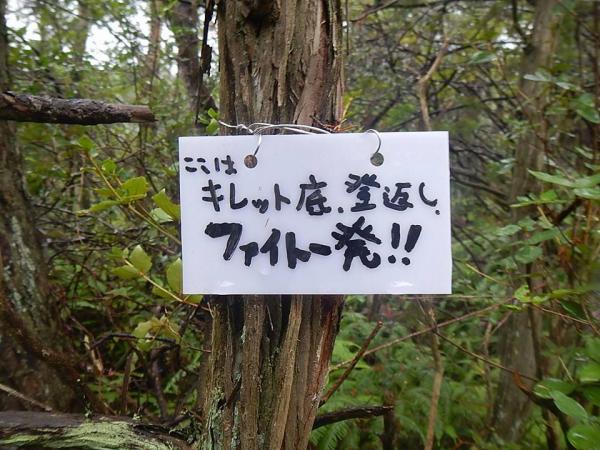 ここは
キレット底、登返し、
ファイトー発!!